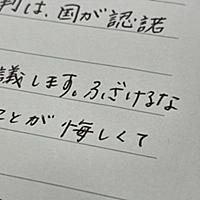 判は、国が認諾
議します。ふざけるな
ことが悔しくて